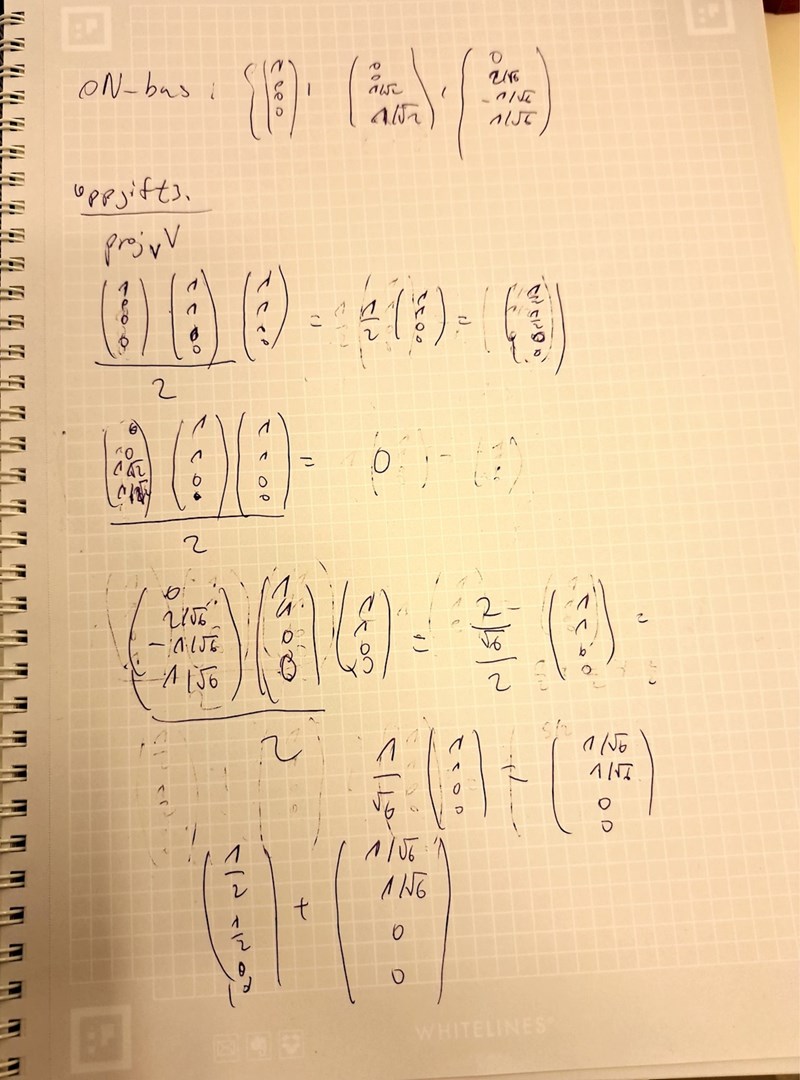 ON-bas : { (1 0 0 0) , (0 0 1/√2 1/√2) , (0 2/√6 -1/√6 1/√6)
Uppgift 3.
proj_v V
(1 0 0 0) (1 1 0 0) (1 1 0 0) / 2 = 1/2 (1 1 0 0) =
(0 0 1/√2 1/√2) (1 1 0 0) (1 1 0 0) / 2 = 0
(0 2/√6 -1/√6 1/√6) (1 1 0 0) (1 1 0 0) / 2 = 2/√6 / 2 (1 1 0 0) =
1/√6 (1 1 0 0) = (1/√6 1/√6 0 0)
(1/2 1/2 0 0) + (1/√6 1/√6 0 0)
WHITELINES®